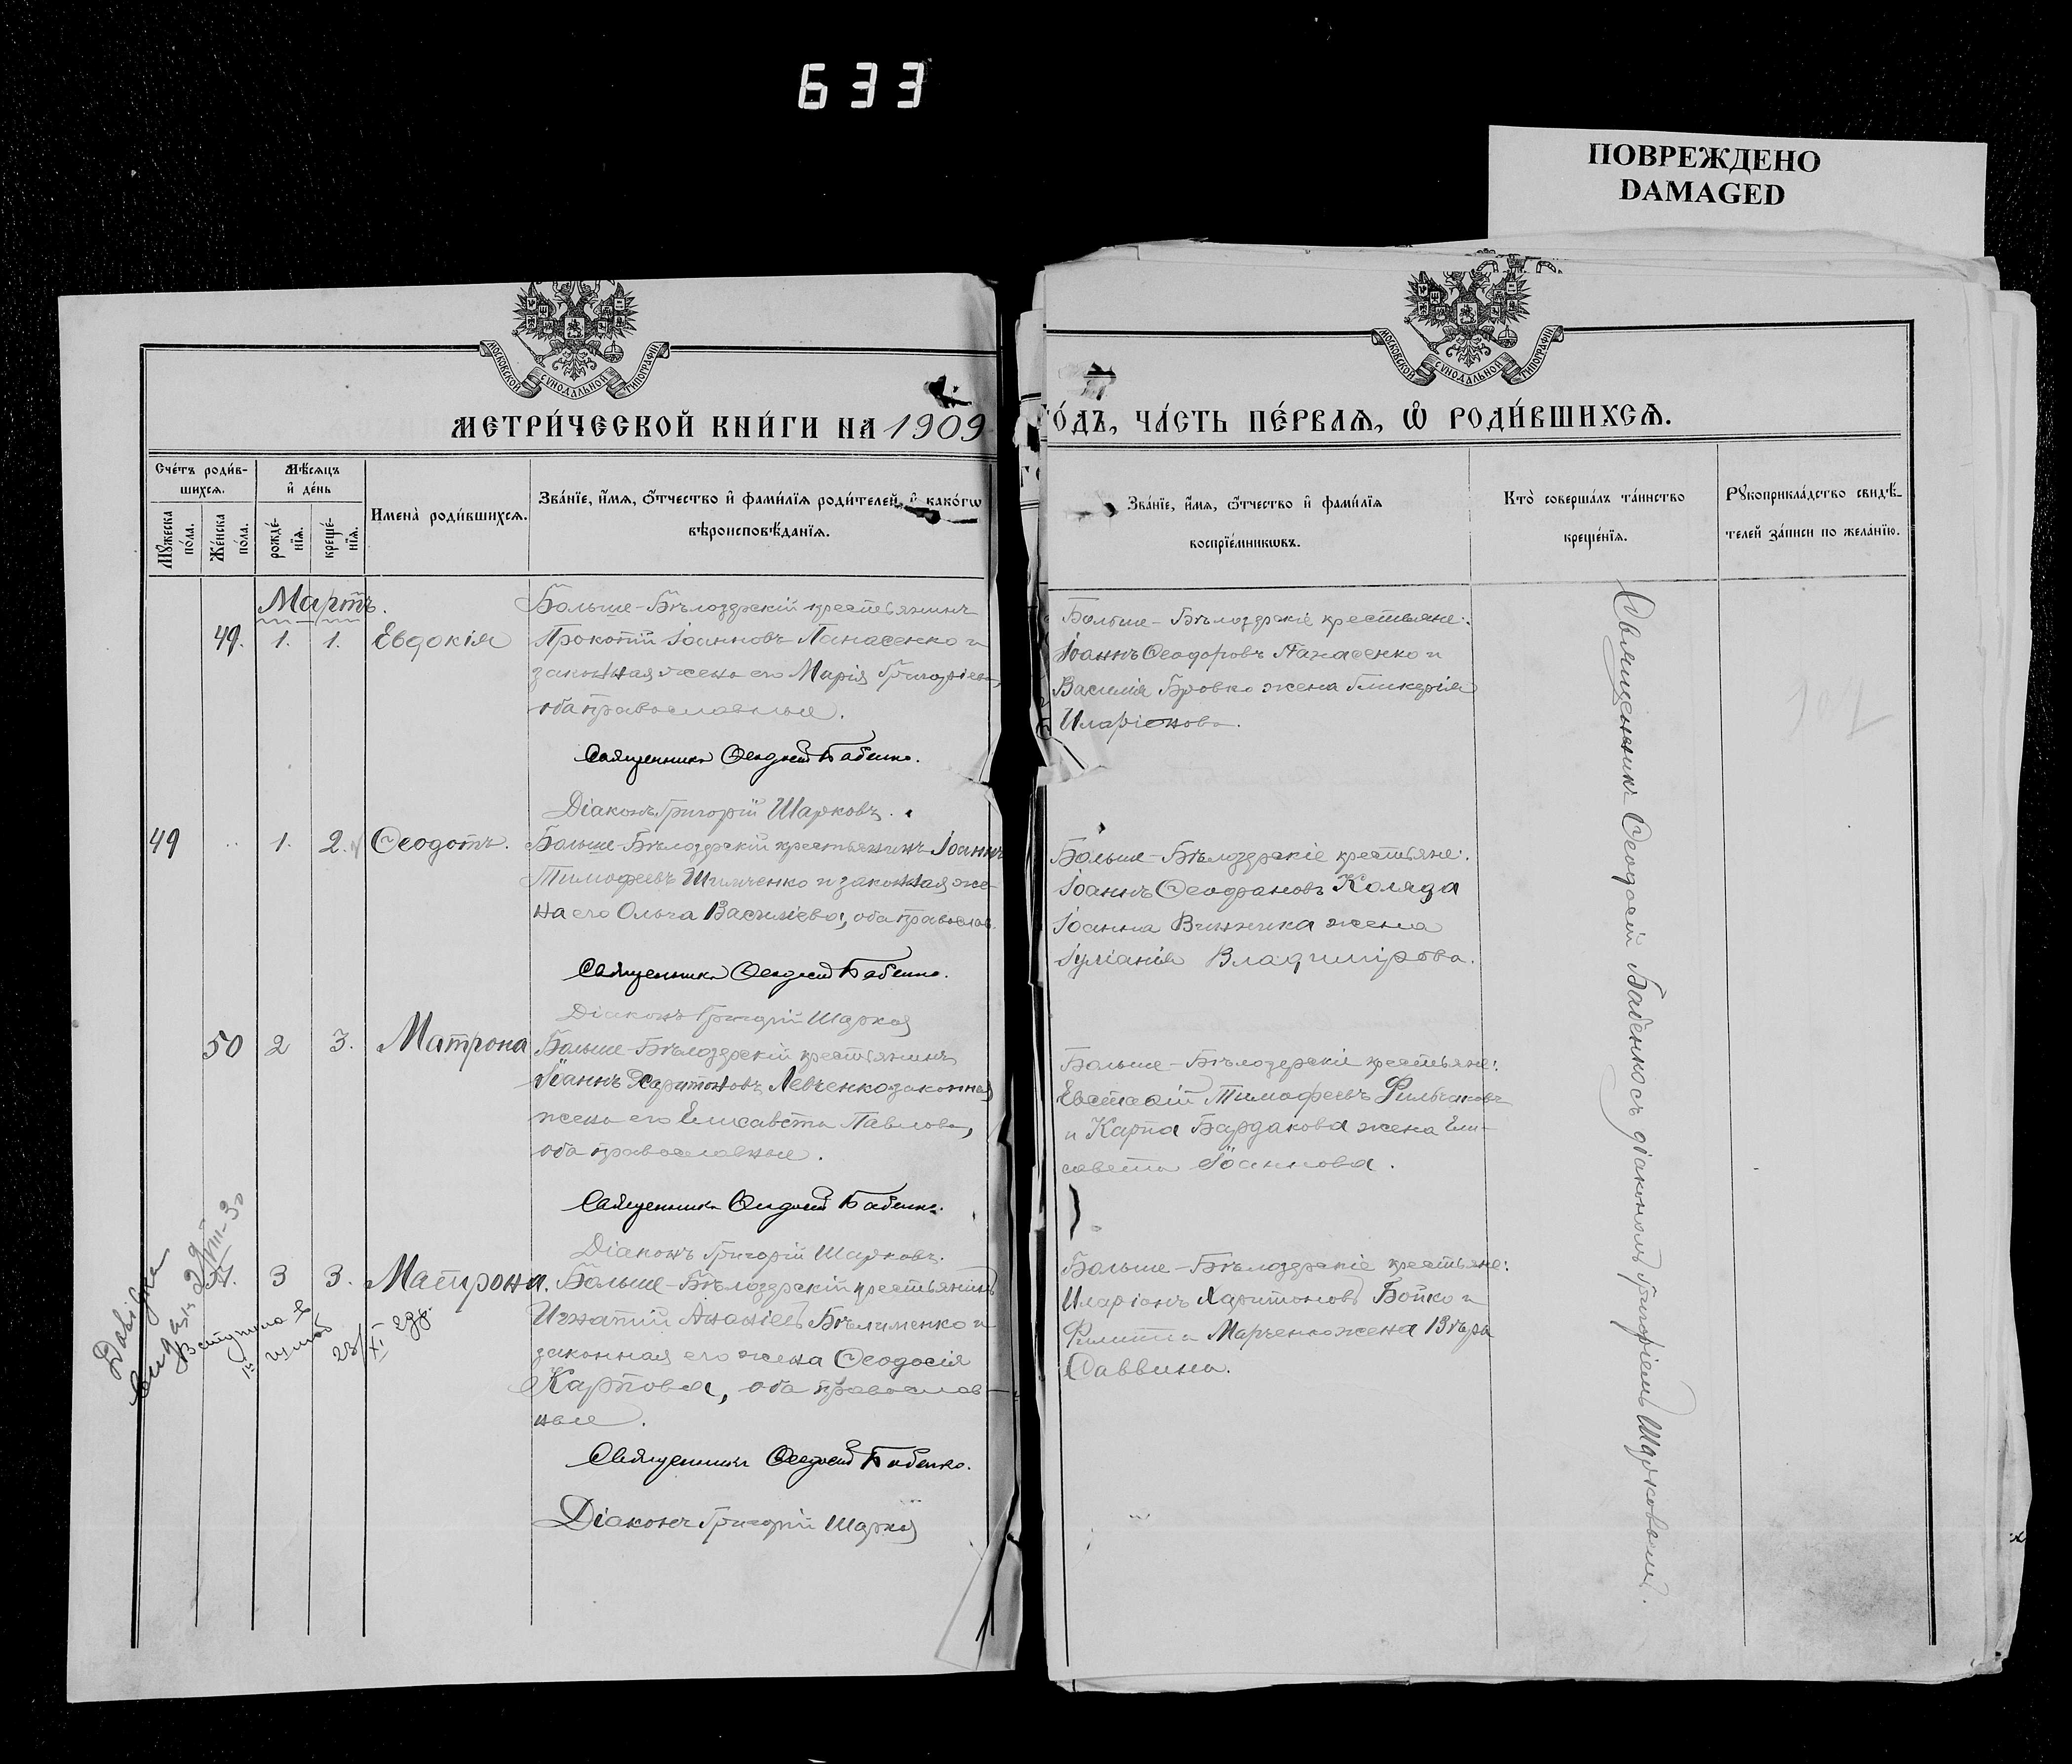 633
ПОВРЕЖДЕНО
DAMAGED
МОСКОВСКОЙ СѴНОДАЛЬНОЙ ТИПОГРАФІИ
МОСКОВСКОЙ СѴНОДАЛЬНОЙ ТИПОГРАФІИ
МЕТРИ́ЧЕСКОЙ КНИ́ГИ НА 1909
ГО́ДЪ, ЧА́СТЬ ПЕ́РВАѦ, Ѡ҆ РОДИ́ВШИХСѦ.
Сче́тъ роди́в-
шихсѧ.
Мѣ́сѧцъ
и҆ де́нь
Мꙋ́жеска
по́ла.
Же́нска
по́ла.
рожде́-
нїѧ.
креще́-
нїѧ.
Имена̀ роди́вшихсѧ.
Зва́нїе, и҆́мѧ, ѻ҆́тчество и҆ фами́лїѧ роди́телей, и҆ како́гѡ
вѣроисповѣ́данїѧ.
Зва́нїе, и҆́мѧ, ѻ҆́тчество и҆ фами́лїѧ
воспрїе́мникѡвъ.
Кто̀ соверша́лъ та́инство
креще́нїѧ.
Рꙋкоприкла́дство свидѣ́-
телей за́писи по жела́нїю.
Мартъ.
49. 1. 1. Евдокія
Больше-Бѣлозерскій крестьянинъ
Прокопій Іоанновъ Панасенко и
законная жена его Марія Григоріева,
оба православные.
Священникъ Ѳеодосій Бабенко.
Діаконъ Григорій Шарковъ.
Больше-Бѣлозерскіе крестьяне:
Іоаннъ Ѳеодоровъ Панасенко и
Василія Бровко жена Гликерія
Иларіонова.
49 1. 2. Ѳеодотъ.
Больше-Бѣлозерскій крестьянинъ Іоаннъ
Тимофеевъ Шимченко и законная же-
на его Ольга Василіева, оба православ.
Священникъ Ѳеодосій Бабенко.
Діаконъ Григорій Шарков
Больше-Бѣлозерскіе крестьяне:
Іоаннъ Ѳеофановъ Коляда
Іоанна Винника жена
Іуліанія Владимірова.
50 2 3. Матрона
Больше-Бѣлозерскій крестьянинъ
Іоаннъ Харитоновъ Левченко законная
жена его Елисавета Павлова,
оба православные.
Священникъ Ѳеодосій Бабенко.
Діаконъ Григорій Шарковъ.
Больше-Бѣлозерскіе крестьяне:
Евстафій Тимофеевъ Фильчаковъ
и Карпа Бардакова жена Ели-
савета Іоаннова.
51. 3 3. Матрона.
Больше-Бѣлозерскій крестьянинъ
Игнатій Ананіевъ Бѣлименко и
законная его жена Ѳеодосія
Карпова, оба православ-
ные.
Священникъ Ѳеодосій Бабенко.
Діаконъ Григорій Шарков
Больше-Бѣлозерскіе крестьяне:
Иларіонъ Харитоновъ Бойко и
Филиппа Марченко жена Вѣра
Саввина.
Священникъ Ѳеодосій Бабенко съ діакономъ Григоріемъ Шарковымъ.
Довідка
видана
Вступила в
23/XI 29р.